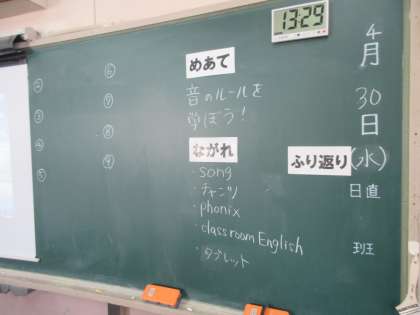 13:29
4
月
30
日
(水)
日直
班
ふり返り
めあて
音のルールを
学ぼう!
ながれ
・song
・チャンツ
・phonix
・classroom English
・タブレット
②
③
④
⑤
⑥
⑦
⑧
⑨